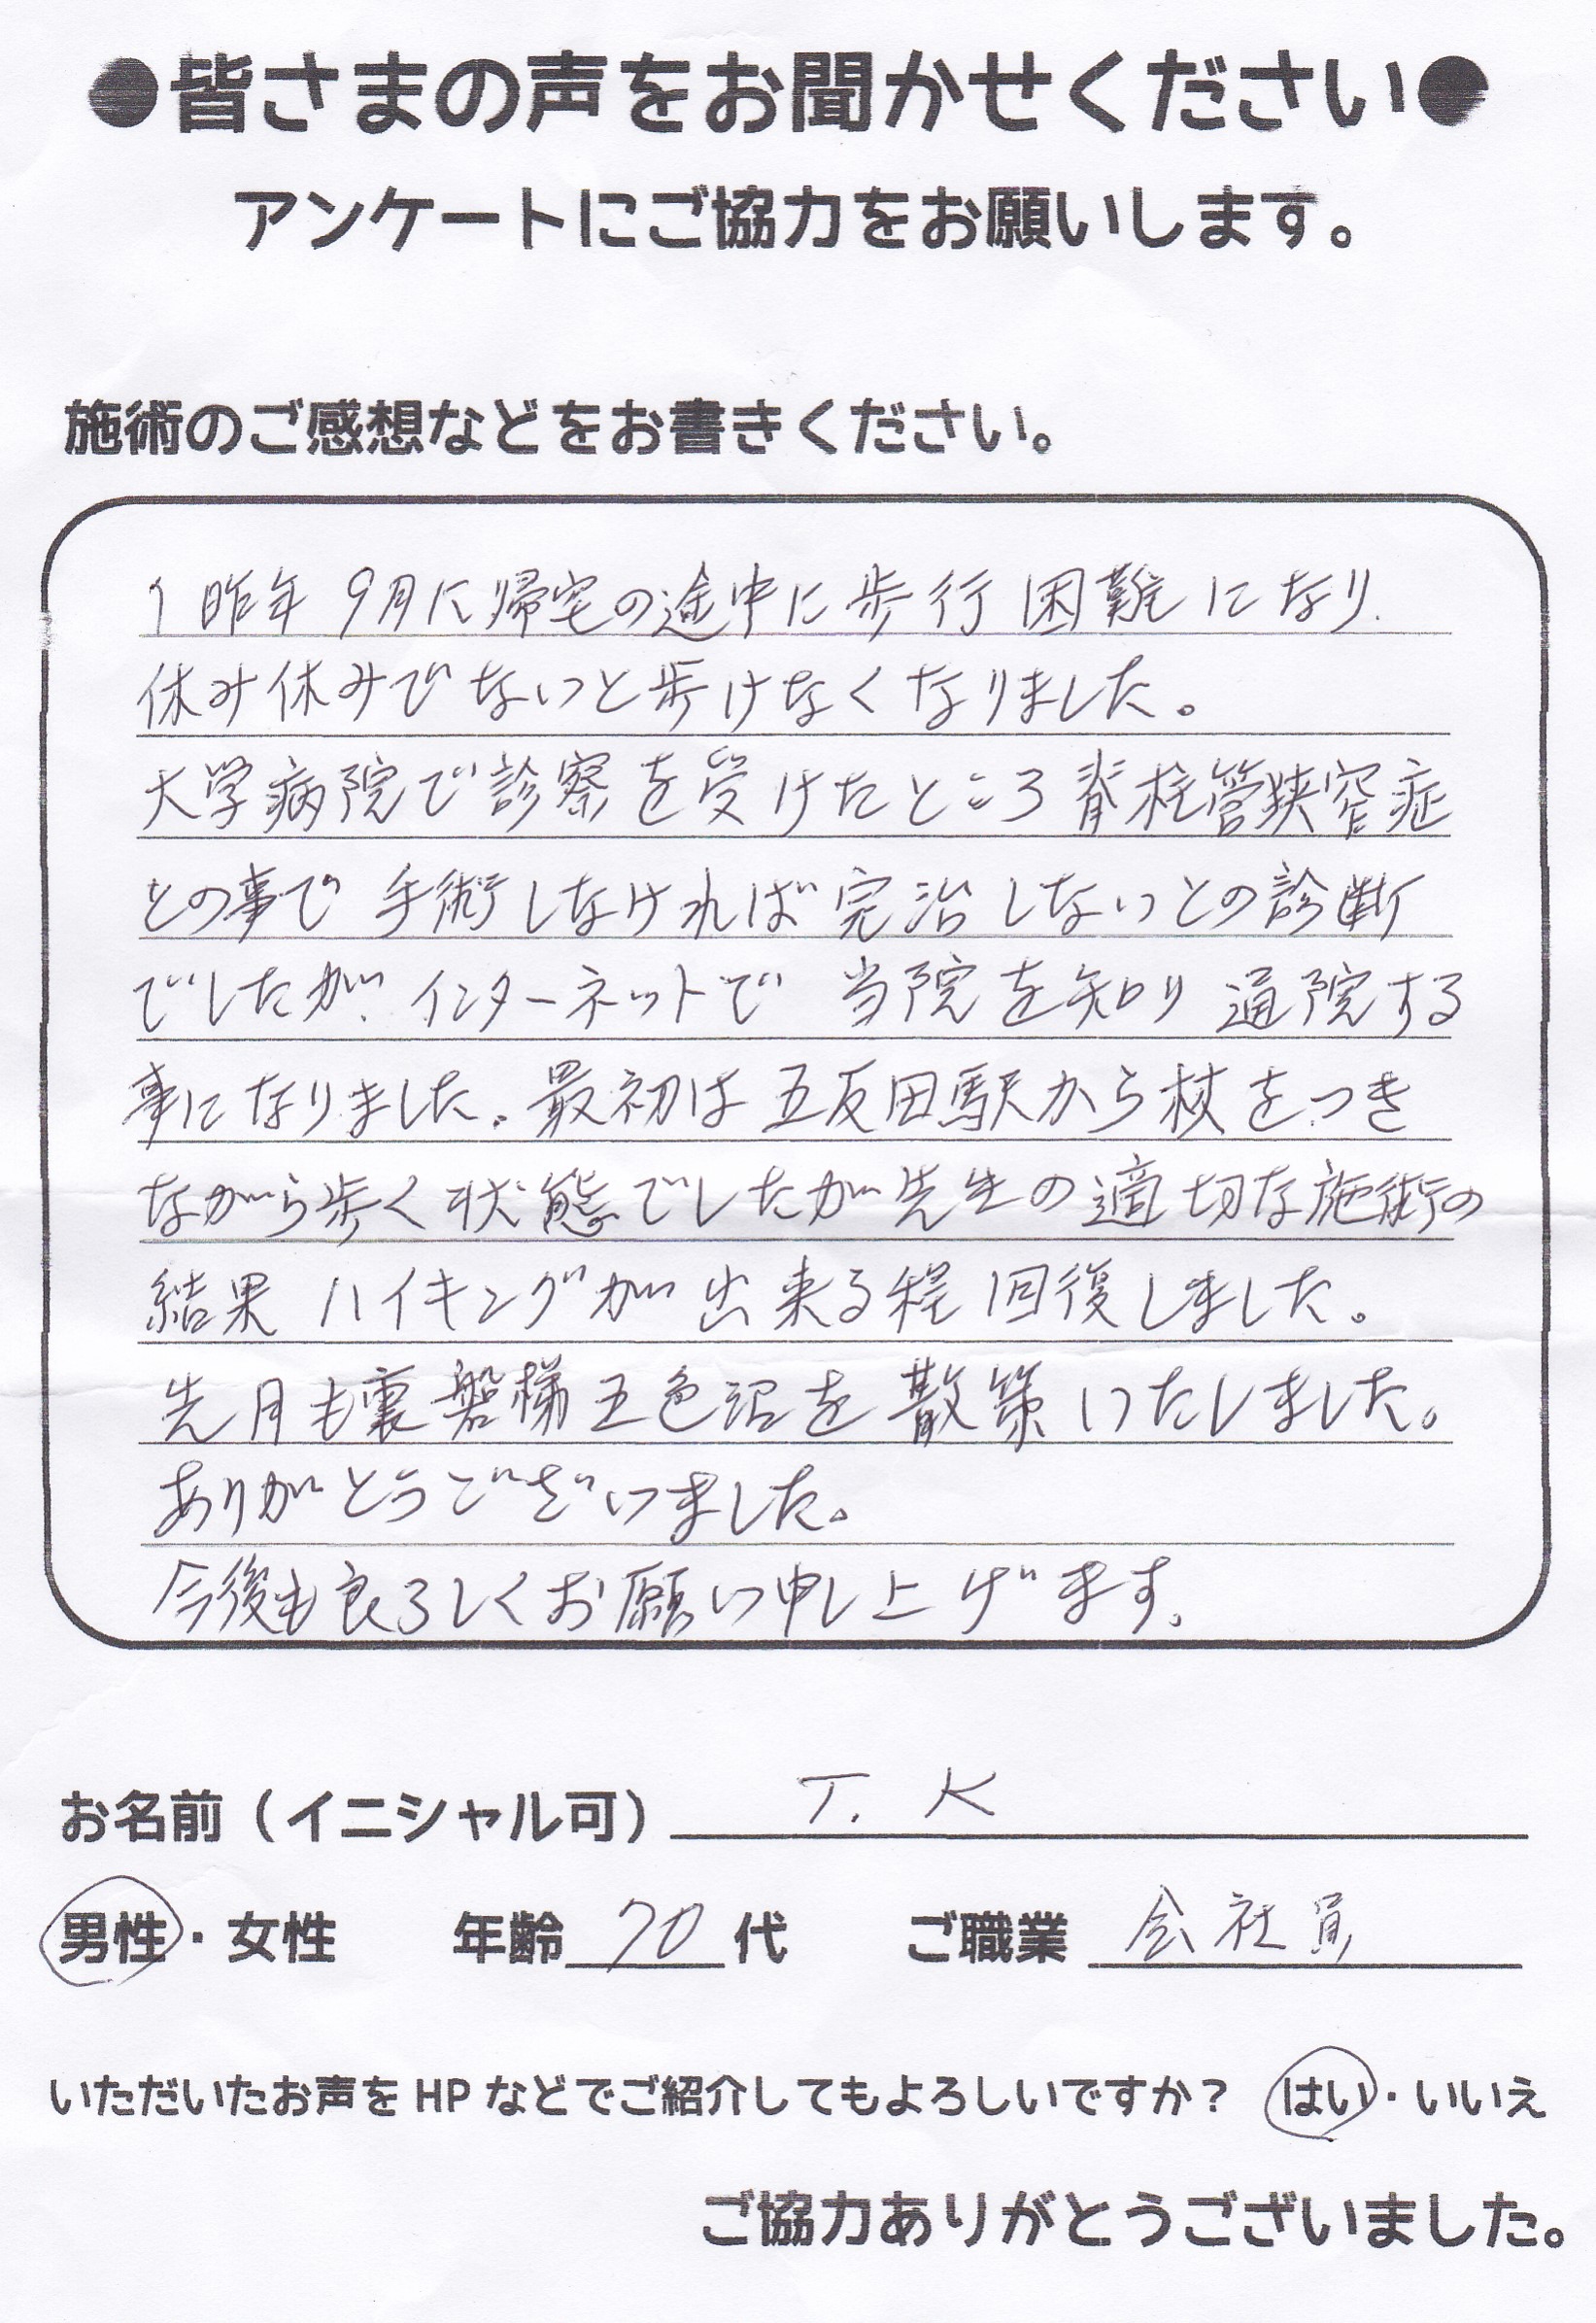 ●皆さまの声をお聞かせください●
アンケートにご協力をお願いします。
施術のご感想などをお書きください。
1昨年 9月に帰宅の途中に歩行困難になり、
休み休みでないと歩けなくなりました。
大学病院で診察を受けたところ脊柱管狭窄症
との事で 手術しなければ完治しないとの診断
でしたが、インターネットで 当院を知り 通院する
事になりました。最初は五反田駅から杖をつき
ながら歩く状態でしたが先生の適切な施術の
結果 ハイキングが出来る程回復しました。
先月も裏磐梯五色沼を散策いたしました。
ありがとうございました。
今後も良ろしくお願い申し上げます。
お名前（イニシャル可） T. K
男性・女性 年齢 70 代 ご職業 会社員
いただいたお声をHPなどでご紹介してもよろしいですか？ はい・いいえ
ご協力ありがとうございました。